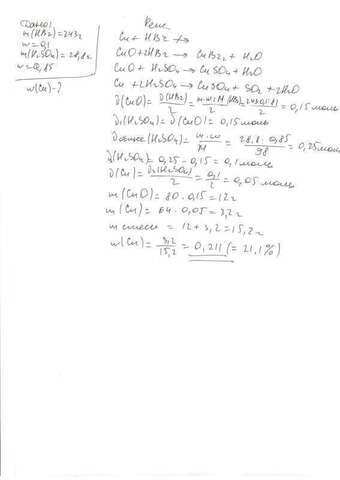 Дано:
m(HBr)=243г
w=0,1
m(H2SO4)=28,8г
w=0,85
w(Cu)-?
Реш
Cu+HBr ↛
CuO+2HBr → CuBr2 + H2O
CuO+H2SO4 → CuSO4+H2O
Cu+2H2SO4 → CuSO4+SO2+2H2O
ν(CuO)= ν(HBr)/2 = = 0,15 моль
ν1(H2SO4)=ν(CuO)=0,15 моль
ν общее(H2SO4)= m·w/M = 28,8·0,85/98 = 0,25 моль
ν2(H2SO4)=0,25-0,15=0,1 моль
ν(Cu)= ν2(H2SO4)/2 = 0,1/2 = 0,05 моль
m(CuO)=80·0,15=12г
m(Cu)=64·0,05=3,2г
m смеси =12+3,2=15,2г
w(Cu)= 3,2/15,2 =0,211(=21,1%)